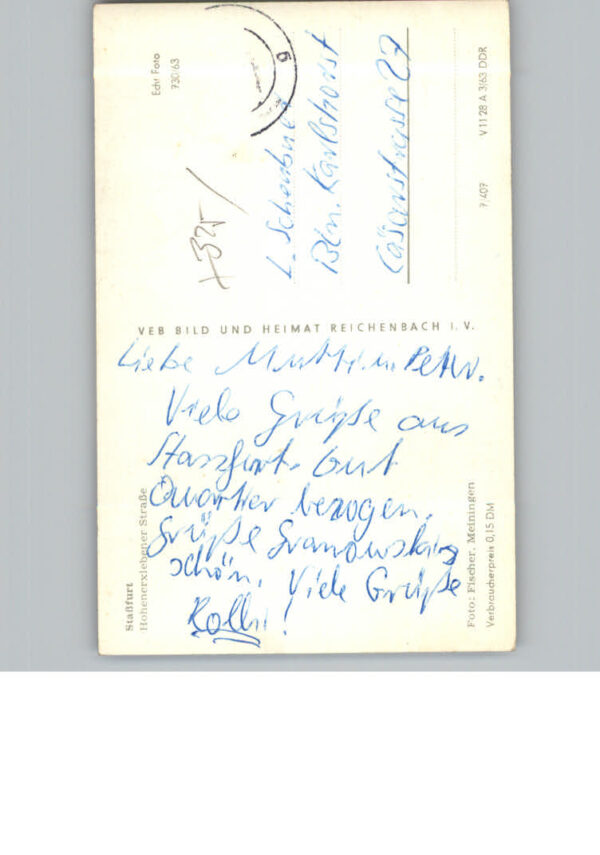 Liebe Mutti u. Peter.
Viele Grüße aus
Stassfurt. Gut
Quartier bezogen.
Grüße Granowskis
schön. Viele Grüße
Rolli!
L.
Bln. Karlshorst
Cäsarstrasse 27
VEB BILD UND HEIMAT REICHENBACH I. V.
Echt Foto
730/63
7/407 V 11 28 A 3/63 DDR
Staßfurt
Hohenerxlebener Straße
Foto: Fischer, Meiningen
Verbraucherpreis 0,15 DM